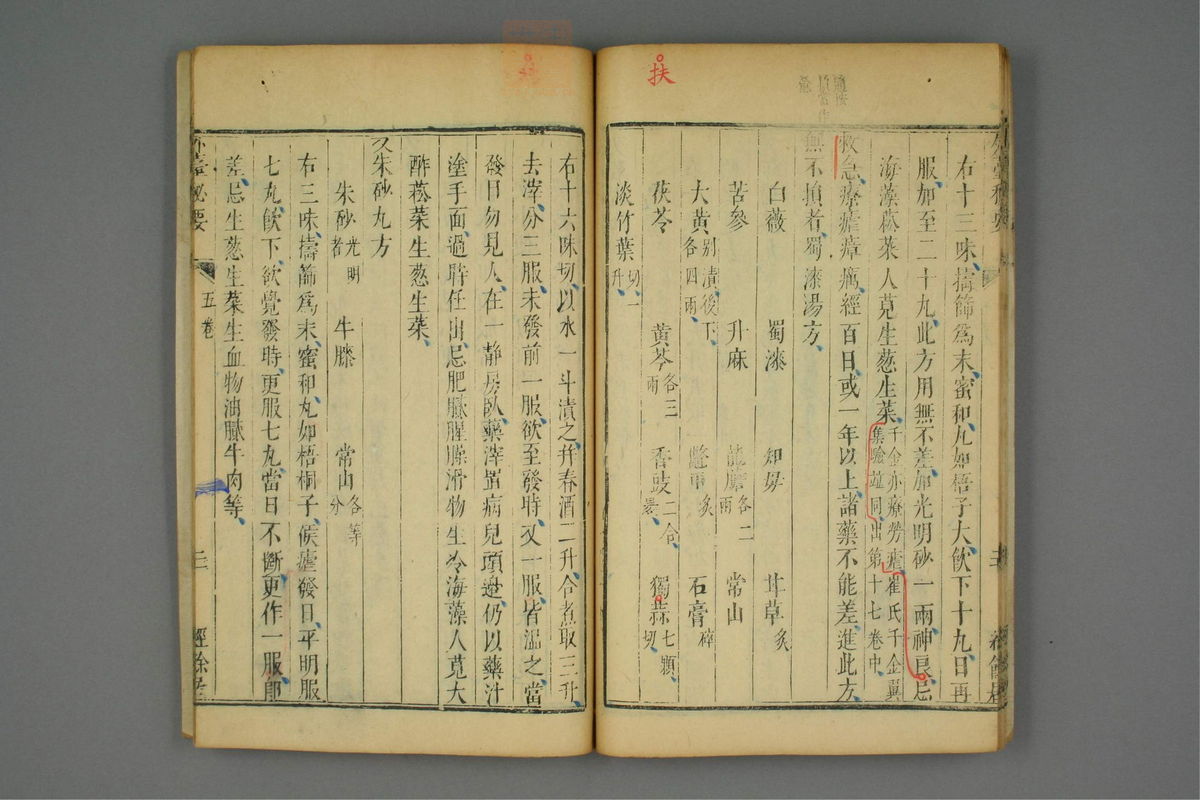 扶
右十三味擣篩為末蜜和丸如梧子大飲下十九日再
服加至二十九此方用無不差加光明砂一兩神良忌
海藻菘菜人莧生葱生菜千金亦療勞瘧崔氏千金翼集驗並同出第十七卷中
救急療瘧瘴癘經百日或一年以上諸藥不能差進此方
無不損者蜀漆湯方
白薇 蜀漆 知母 甘草炙
苦參 升麻 龍膽各二兩 常山
大黃別漬後下各四兩 鱉甲炙 石膏碎
茯苓 黃芩各三兩 香豉二合 獨蒜七顆切
淡竹葉切一升
右十六味切以水一斗漬之并春酒二升合煮取三升
去滓分三服未發前一服欲至發時又一服皆溫之當
發日勿見人在一靜房臥藥滓置病兒頭邊仍以藥汁
塗手面過時任出忌肥膩腥臊滑物生冷海藻人莧大
酢菘菜生葱生菜
又朱砂丸方
朱砂光明者 牛膝 常山各等分
右三味擣篩為末蜜和丸如梧桐子候瘧發日平明服
七丸飲下欲覺發時更服七丸當日不斷更作一服即
差忌生葱生菜生血物油膩牛肉等
外臺秘要 五卷 三 經餘居